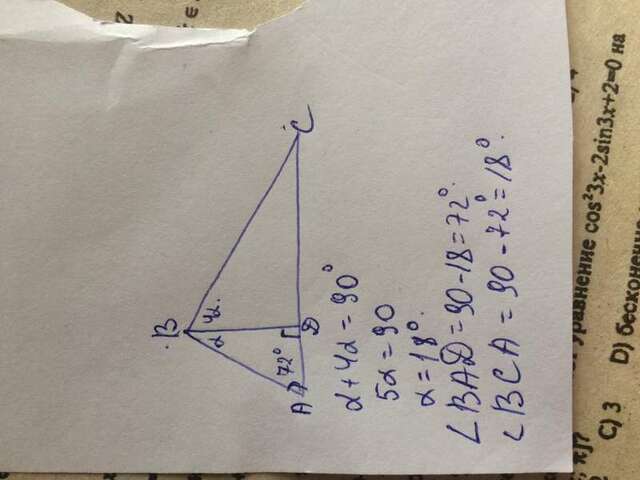 B
α 4α
72°
A D C
α+4α=90°
5α=90
α=18°.
∠BAD=90-18=72°.
∠BCA=90-72°=18°.
уравнение cos²3x-2sin3x+2=0 на
C) 3 D) бесконечно